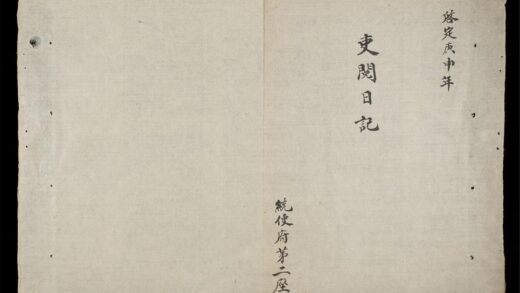 啓定庚申年
吏閱日記
統使府第二座